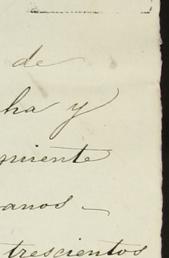 de
ha y
miente
anos _
trescientos